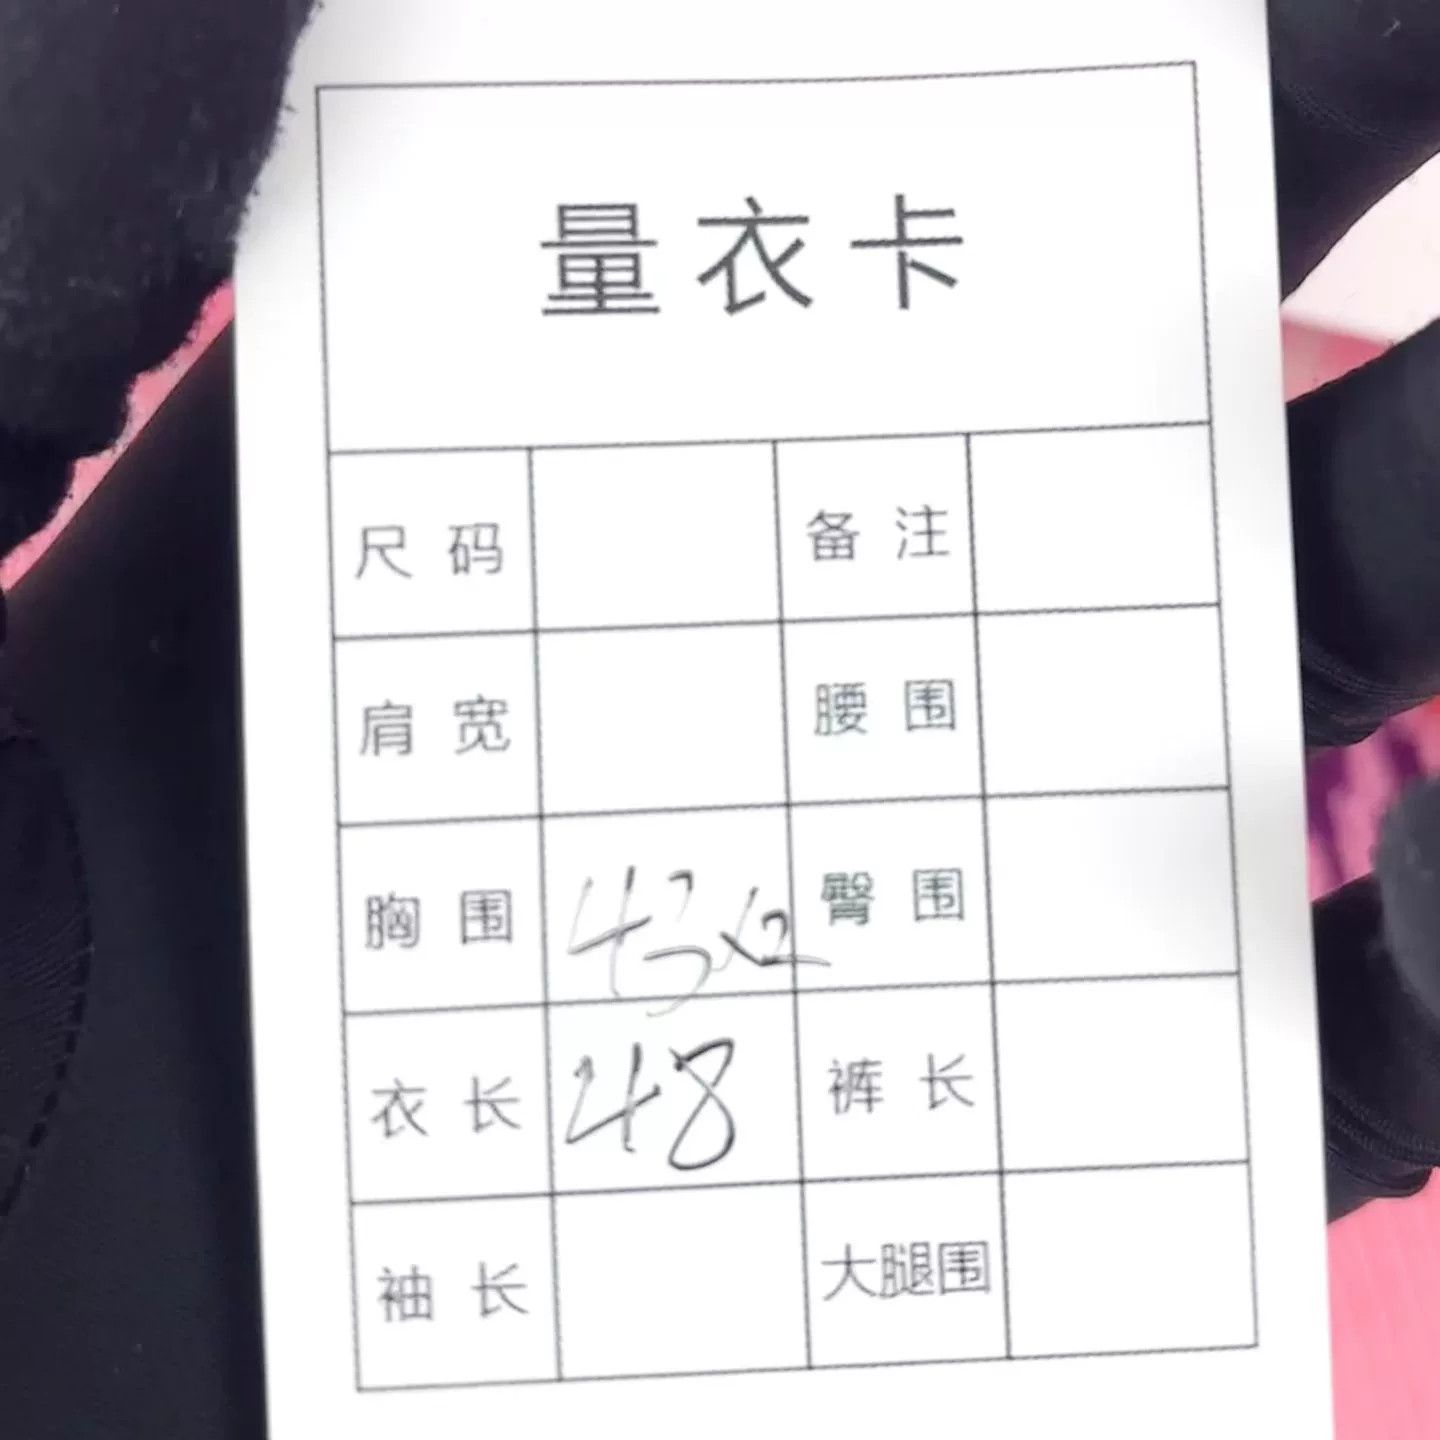 量衣卡
尺码 备注
肩宽 腰围
胸围 43x2 臀围
衣长 48 裤长
袖长 大腿围